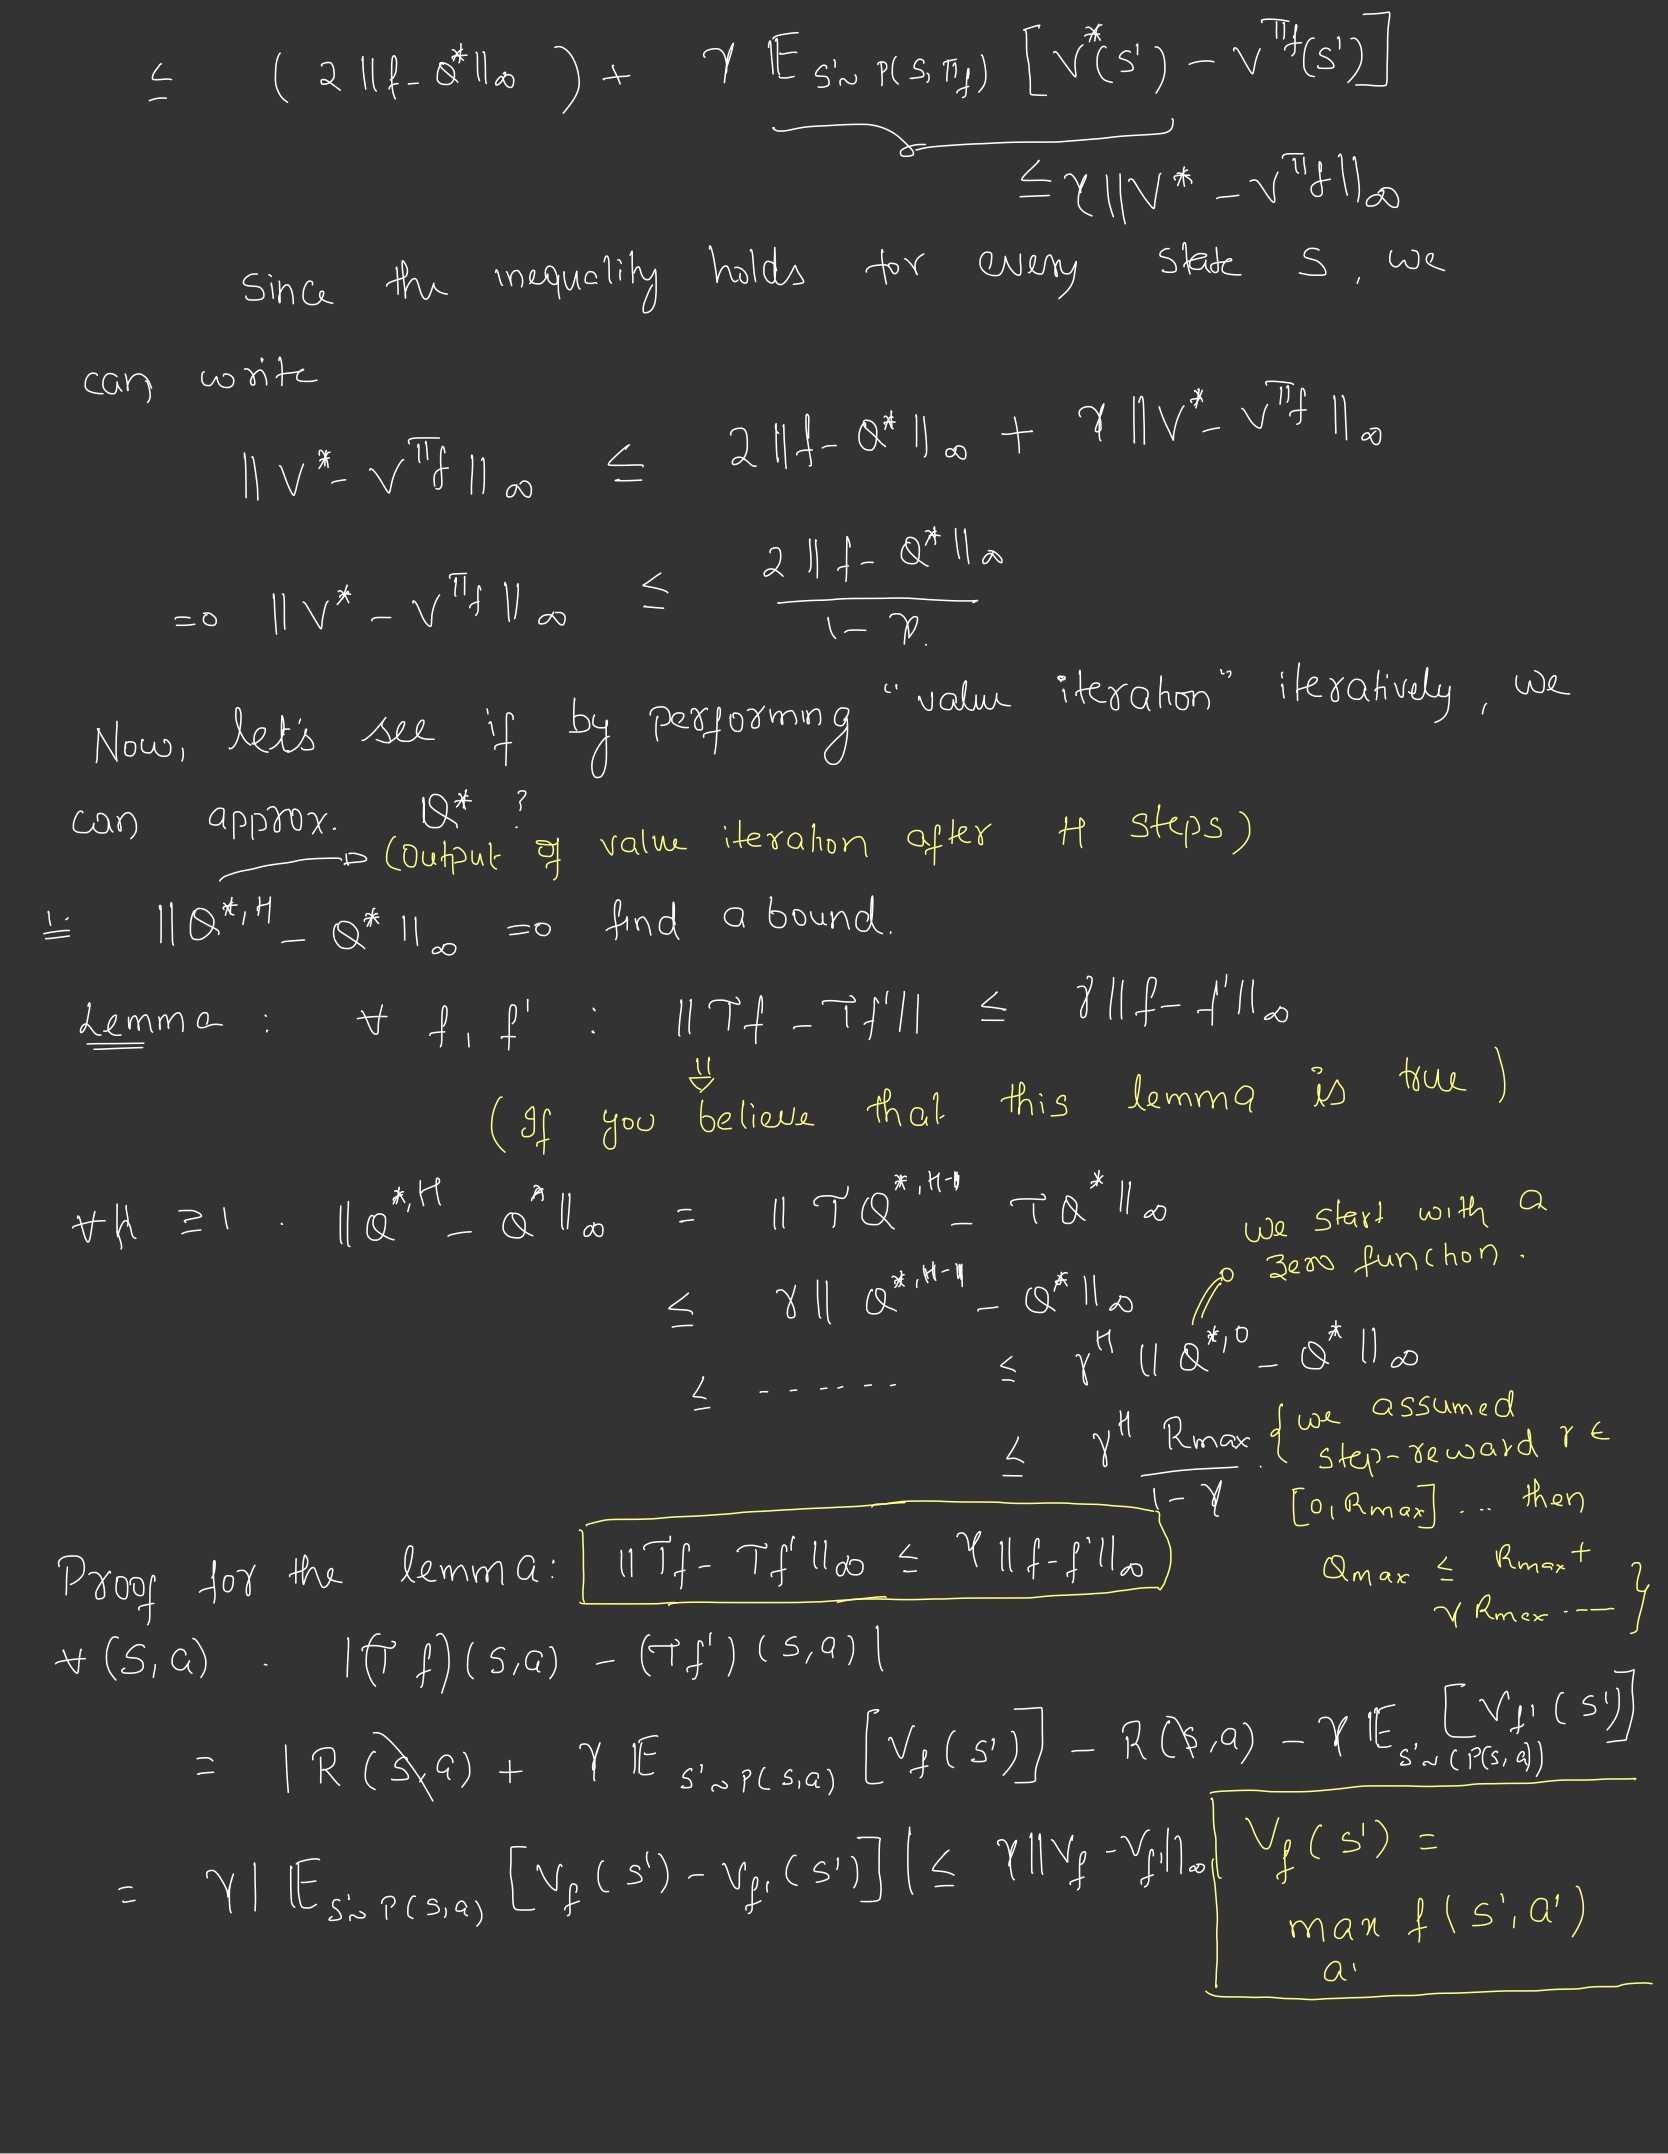 ≤ ( 2 ||f - Q*||∞ ) + γ 𝔼 s'~P(s, π_f) [ V*(s') - V^{π_f}(s') ]
≤ γ ||V* - V^{π_f}||∞
Since the inequality holds for every state s, we
can write
||V* - V^{π_f}||∞ ≤ 2 ||f - Q*||∞ + γ ||V* - V^{π_f}||∞
=> ||V* - V^{π_f}||∞ ≤ 2 ||f - Q*||∞ / 1 - γ.
Now, let's see if by performing "value iteration" iteratively, we
can approx. Q* ?
(Output of value iteration after H steps)
1. ||Q^{*,H} - Q*||∞ => find a bound.
Lemma : ∀ f, f' : ||Tf - Tf'|| ≤ γ ||f - f'||∞
(If you believe that this lemma is true)
∀H ≥ 1 . ||Q^{*,H} - Q*||∞ = || TQ^{*,H-1} - TQ* ||∞
we start with a
zero function.
≤ γ || Q^{*,H-1} - Q* ||∞
≤ ....... ≤ γ^H || Q^{*,0} - Q* ||∞
≤ γ^H Rmax / 1 - γ . { we assumed
step-reward r ∈
[0, Rmax] ... then
Qmax ≤ Rmax +
γ Rmax .... }
Proof for the lemma: ||Tf - Tf'||∞ ≤ γ ||f - f'||∞
∀ (s,a) . |(Tf)(s,a) - (Tf')(s,a)|
= | R(s,a) + γ 𝔼 s'~P(s,a) [V_f(s')] - R(s,a) - γ 𝔼 s'~(P(s,a)) [V_{f'}(s')]
= γ | 𝔼 s'~P(s,a) [V_f(s') - V_{f'}(s')] | ≤ γ ||V_f - V_{f'}||∞
V_f(s') =
max f(s', a')
a'